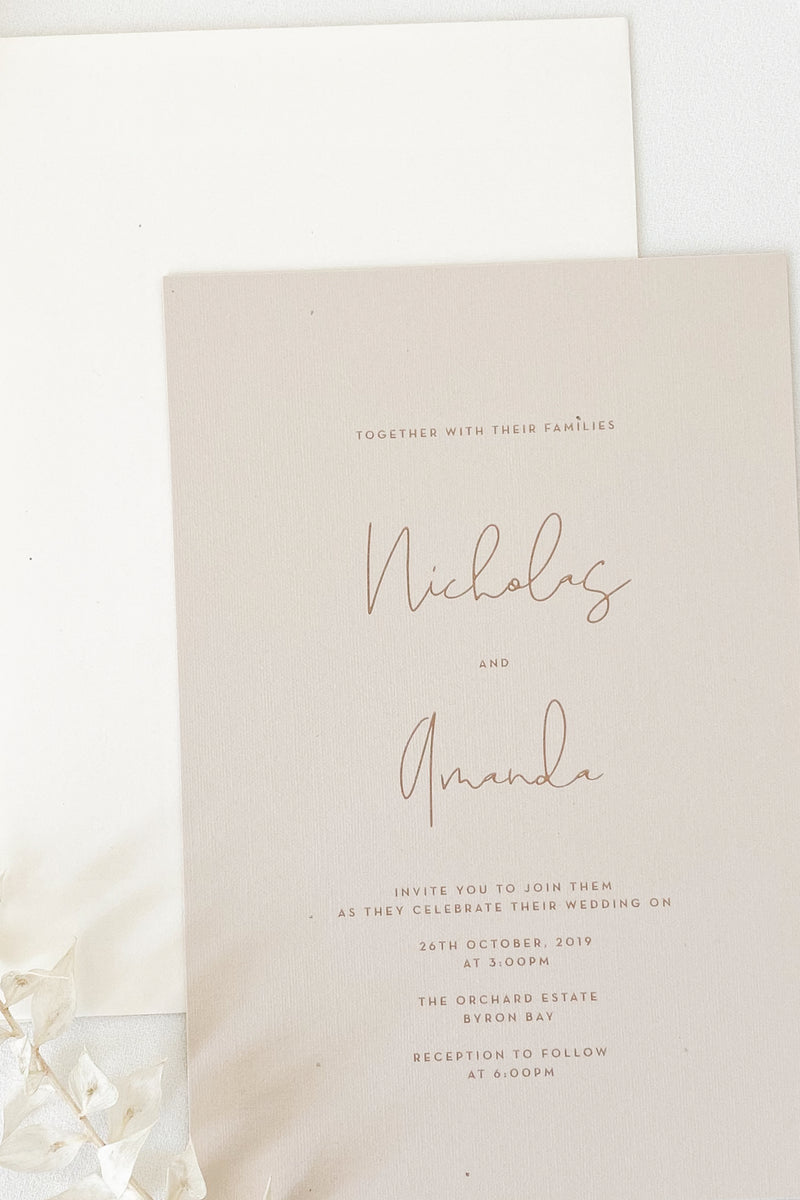 TOGETHER WITH THEIR FAMILIES
Nicholas
AND
Amanda
INVITE YOU TO JOIN THEM
AS THEY CELEBRATE THEIR WEDDING ON
26TH OCTOBER, 2019
AT 3:00PM
THE ORCHARD ESTATE
BYRON BAY
RECEPTION TO FOLLOW
AT 6:00PM